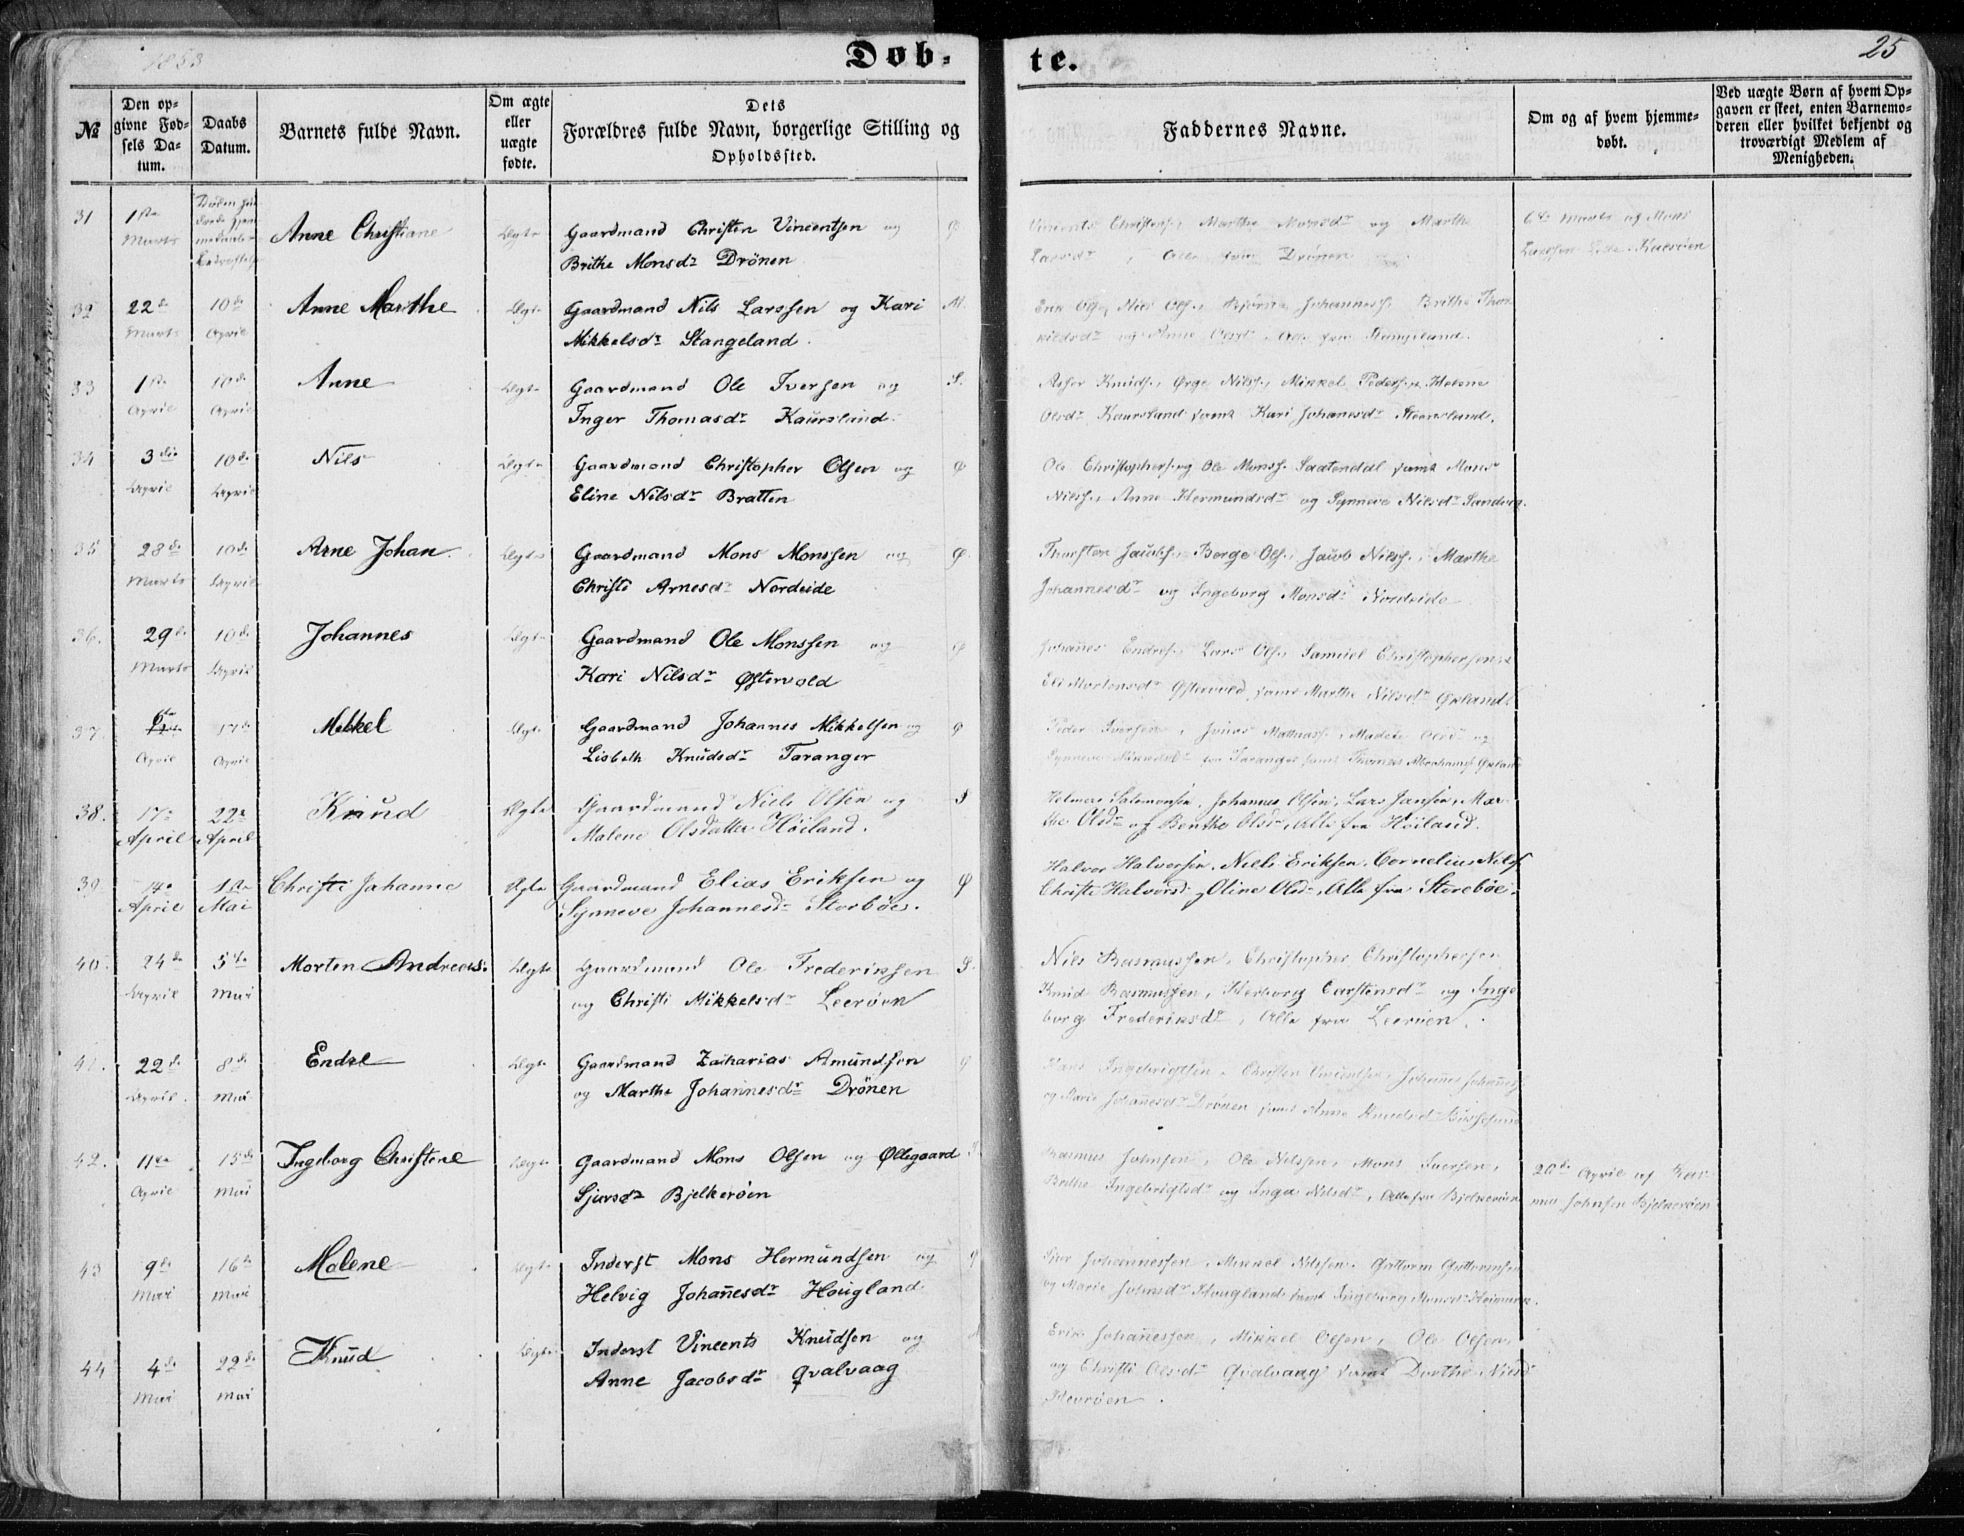 1853
Døb-
te.
25
№
Den op-
givne Fød-
sels Da-
tum.
Daabs
Datum.
Barnets fulde Navn.
Om ægte
eller
uægte
fødte.
Dets
Forældres fulde Navn, borgerlige Stilling og
Opholdssted.
Faddernes Navne.
Om og af hvem hjemme-
døbt.
Ved uægte Børn af hvem Op-
gaven er skeet, enten Barnemo-
deren eller hvilket bekjendt og
troværdigt Medlem af
Menigheden.
31
1ste
Marts
Anne Christiane
Ægte
Gaardmand Christen Vincentsen og
Brithe Monsdr Drönen
Vincents Marthe Monsdr og Marthe
Larsdr, Alle fra Drönen
6te Marts af Mons
32
22de
Marts
10de
April
Anne Marthe
Ægte
Gaardmand Nils Larssen og Kari
Mikkelsdr Stangeland.
Erik Ols, Nils Ols, Johanness, Brithe
og Anne Alle fra Stangeland.
33
1ste
April
10de
April
Anne
Ægte
Gaardmand Ole Iversen og
Inger Thomasdr Kaursland.
Asser Knuds., Ørge Nilss., Mikkel Peders., Helene
Olsdr Kaursland samt Kari Johanesdr
34
3die
April
10de
April
Nils
Ægte
Gaardmand Christopher Olsen og
Eline Nilsdr Bratten
Ole Christophers. og Ole Monss. samt Mons
Nilss., Anne Hermundsdr og Synneve Nilsdr Sandvig.
35
28de
Marts
10de
April
Arne Johan.
Ægte
Gaardmand Mons Monssen og
Christi Arnesdr Nordeide
Thorsten Jacobs., Børge Ols., Jacob Nilss., Marthe
Johannesdr og Ingeborg Monsdr Nordeide
36.
29de
Marts
10de
April
Johannes
Ægte
Gaardmand Ole Monssen og
Kari Nilsdr Østervold
Johanes Endres., Lars Ols., Samuel Christophersen,
Eli Mortensdr Østervold samt Marthe Nilsdr Øxland.
37.
April
17de
April
Mikkel
Ægte
Gaardmand Johannes Mikkelsen og
Lisbeth Knudsdr Taranger
Peder Iversen, og
Synneve fra Taranger samt Thomas Abrahams Øxland
38.
17de
April
22de
April
Knud
Ægte
Gaardmand Niels Olsen og
Malene Olsdatter Höiland.
S
Helmers Salomonsen, Johannes Olsen, Lars Jansen, Mar-
the Olsdr og Benthe Olsdr, Alle fra Höiland.
39
14de
April
1ste
Mai
Christi Johanne
Ægte
Gaardmand Elias Eriksen og
Synneve Johannesdr Storböe.
Halvor Halvorsen, Niels Eriksen, Cornelius Nilss
Christi Halvorsd. og Oline Olsdr, Alle fra Storeböe.
40.
24de
April
5te
Mai
Morten Andreas.
Ægte
Gaardmand Ole Frederiksen
og Christi Mikkelsdr Leeröen
S.
Nils Rasmussen, Christopher Christophersen
Knud Rasmussen, Herborg Carstensdr og Inge
borg Frederiksdr, Alle fra Leeröen.
41.
22de
April.
8de
Mai
Endre
Ægte
Gaardmand Zacharias Amundsen
og Marthe Johannesdr Drönen
Hans Ingebrigtsen, Christen Vincentsen, Johannes Johanness
og Marie Johanesdr Drönen samt Anne Knudsdr
42.
11te
April
15de
Mai
Ingeborg Christene
Ægte
Gaardmand Mons Olsen og Øllegaard
Sjursdr Bjelkeröen
Rasmus Johnsen, Ole Nilssen, Mons Iversen,
Brithe Ingebrigtsdr og Inga Nilsdr, Alle fra Bjelkeröen
20de April af Ras-
mus Johnsen Bjelkeröen
43
9de
Mai
16de
Mai
Malene
Ægte
Inderst Mons Hermundsen og
Helvig Johanesdr Hougland.
Sjur Johannessen, Mikkel Nilssen, Guttorm Guttormsen
og Marie Johnsdr Hougland samt Ingeborg Monsdr
44
4de
Mai
22de
Mai
Knud
Ægte
Inderst Vincents Knudsen og
Anne Jacobsdr Qvalvaag
Erik Johanessen, Mikkel Olsen, Ole Olsen,
og Christi Olsdr Qvalvaag samt Dorthe Nilsd